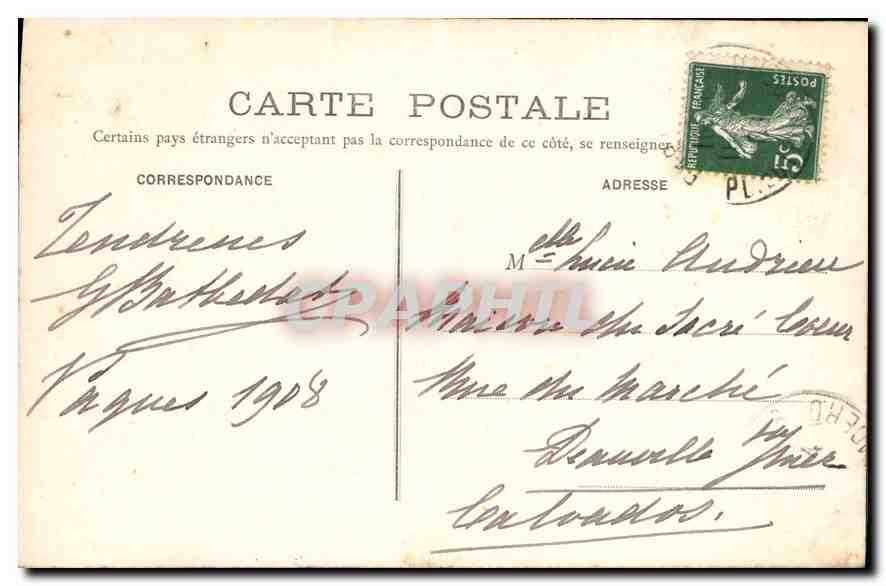 CARTE POSTALE
Certains pays étrangers n'acceptant pas la correspondance de ce côté, se renseigner
CORRESPONDANCE
Tendresses
G Bathedat
Pâques 1908
ADRESSE
Mdlle Lucie Andrieu
Maison du Sacré Coeur
Rue du Marché
Deauville s/mer
Calvados.
REPUBLIQUE FRANÇAISE
POSTES
5c
CPAPHIL